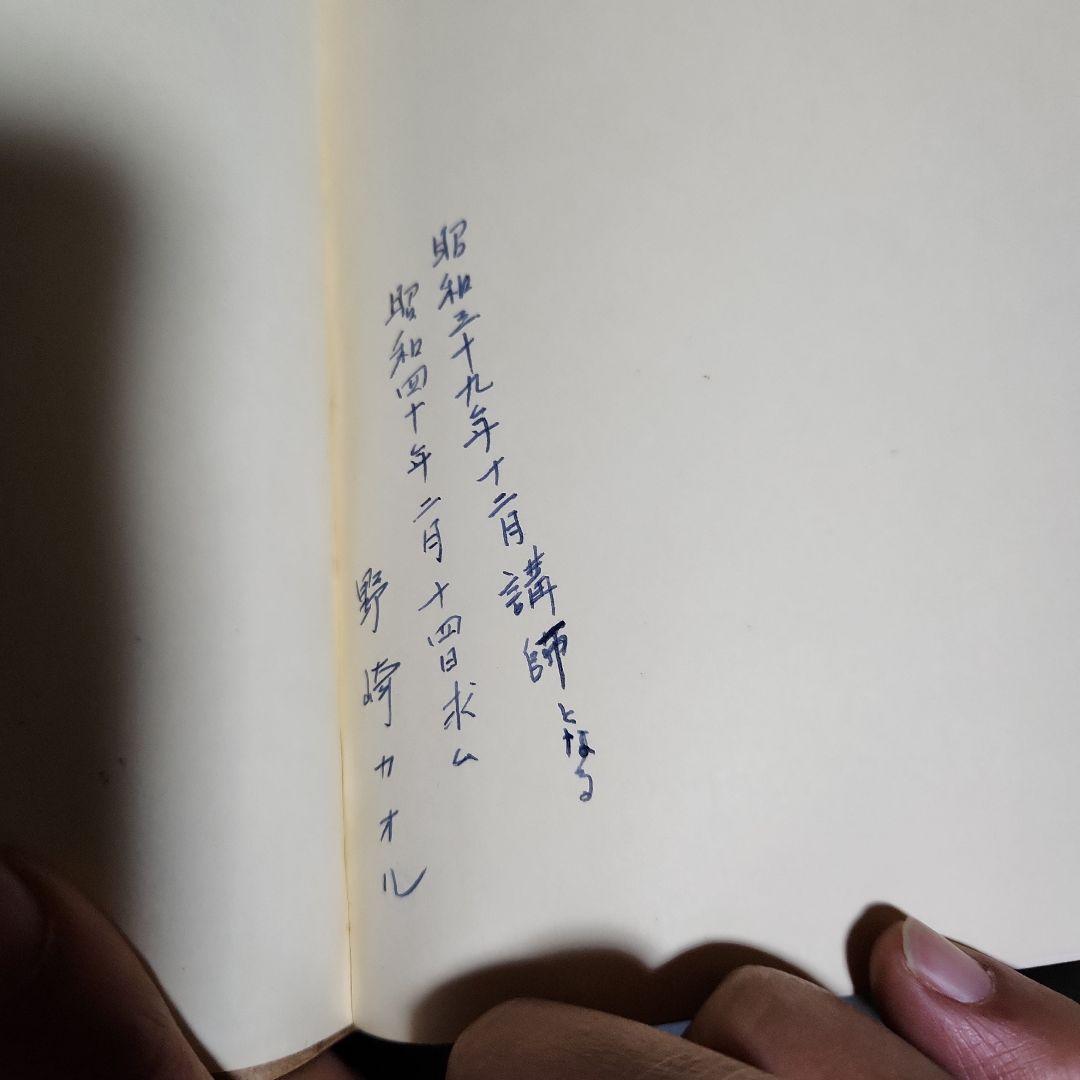 昭和三十九年十二月講師となる
昭和四十年二月十四日求ム
野崎カオル